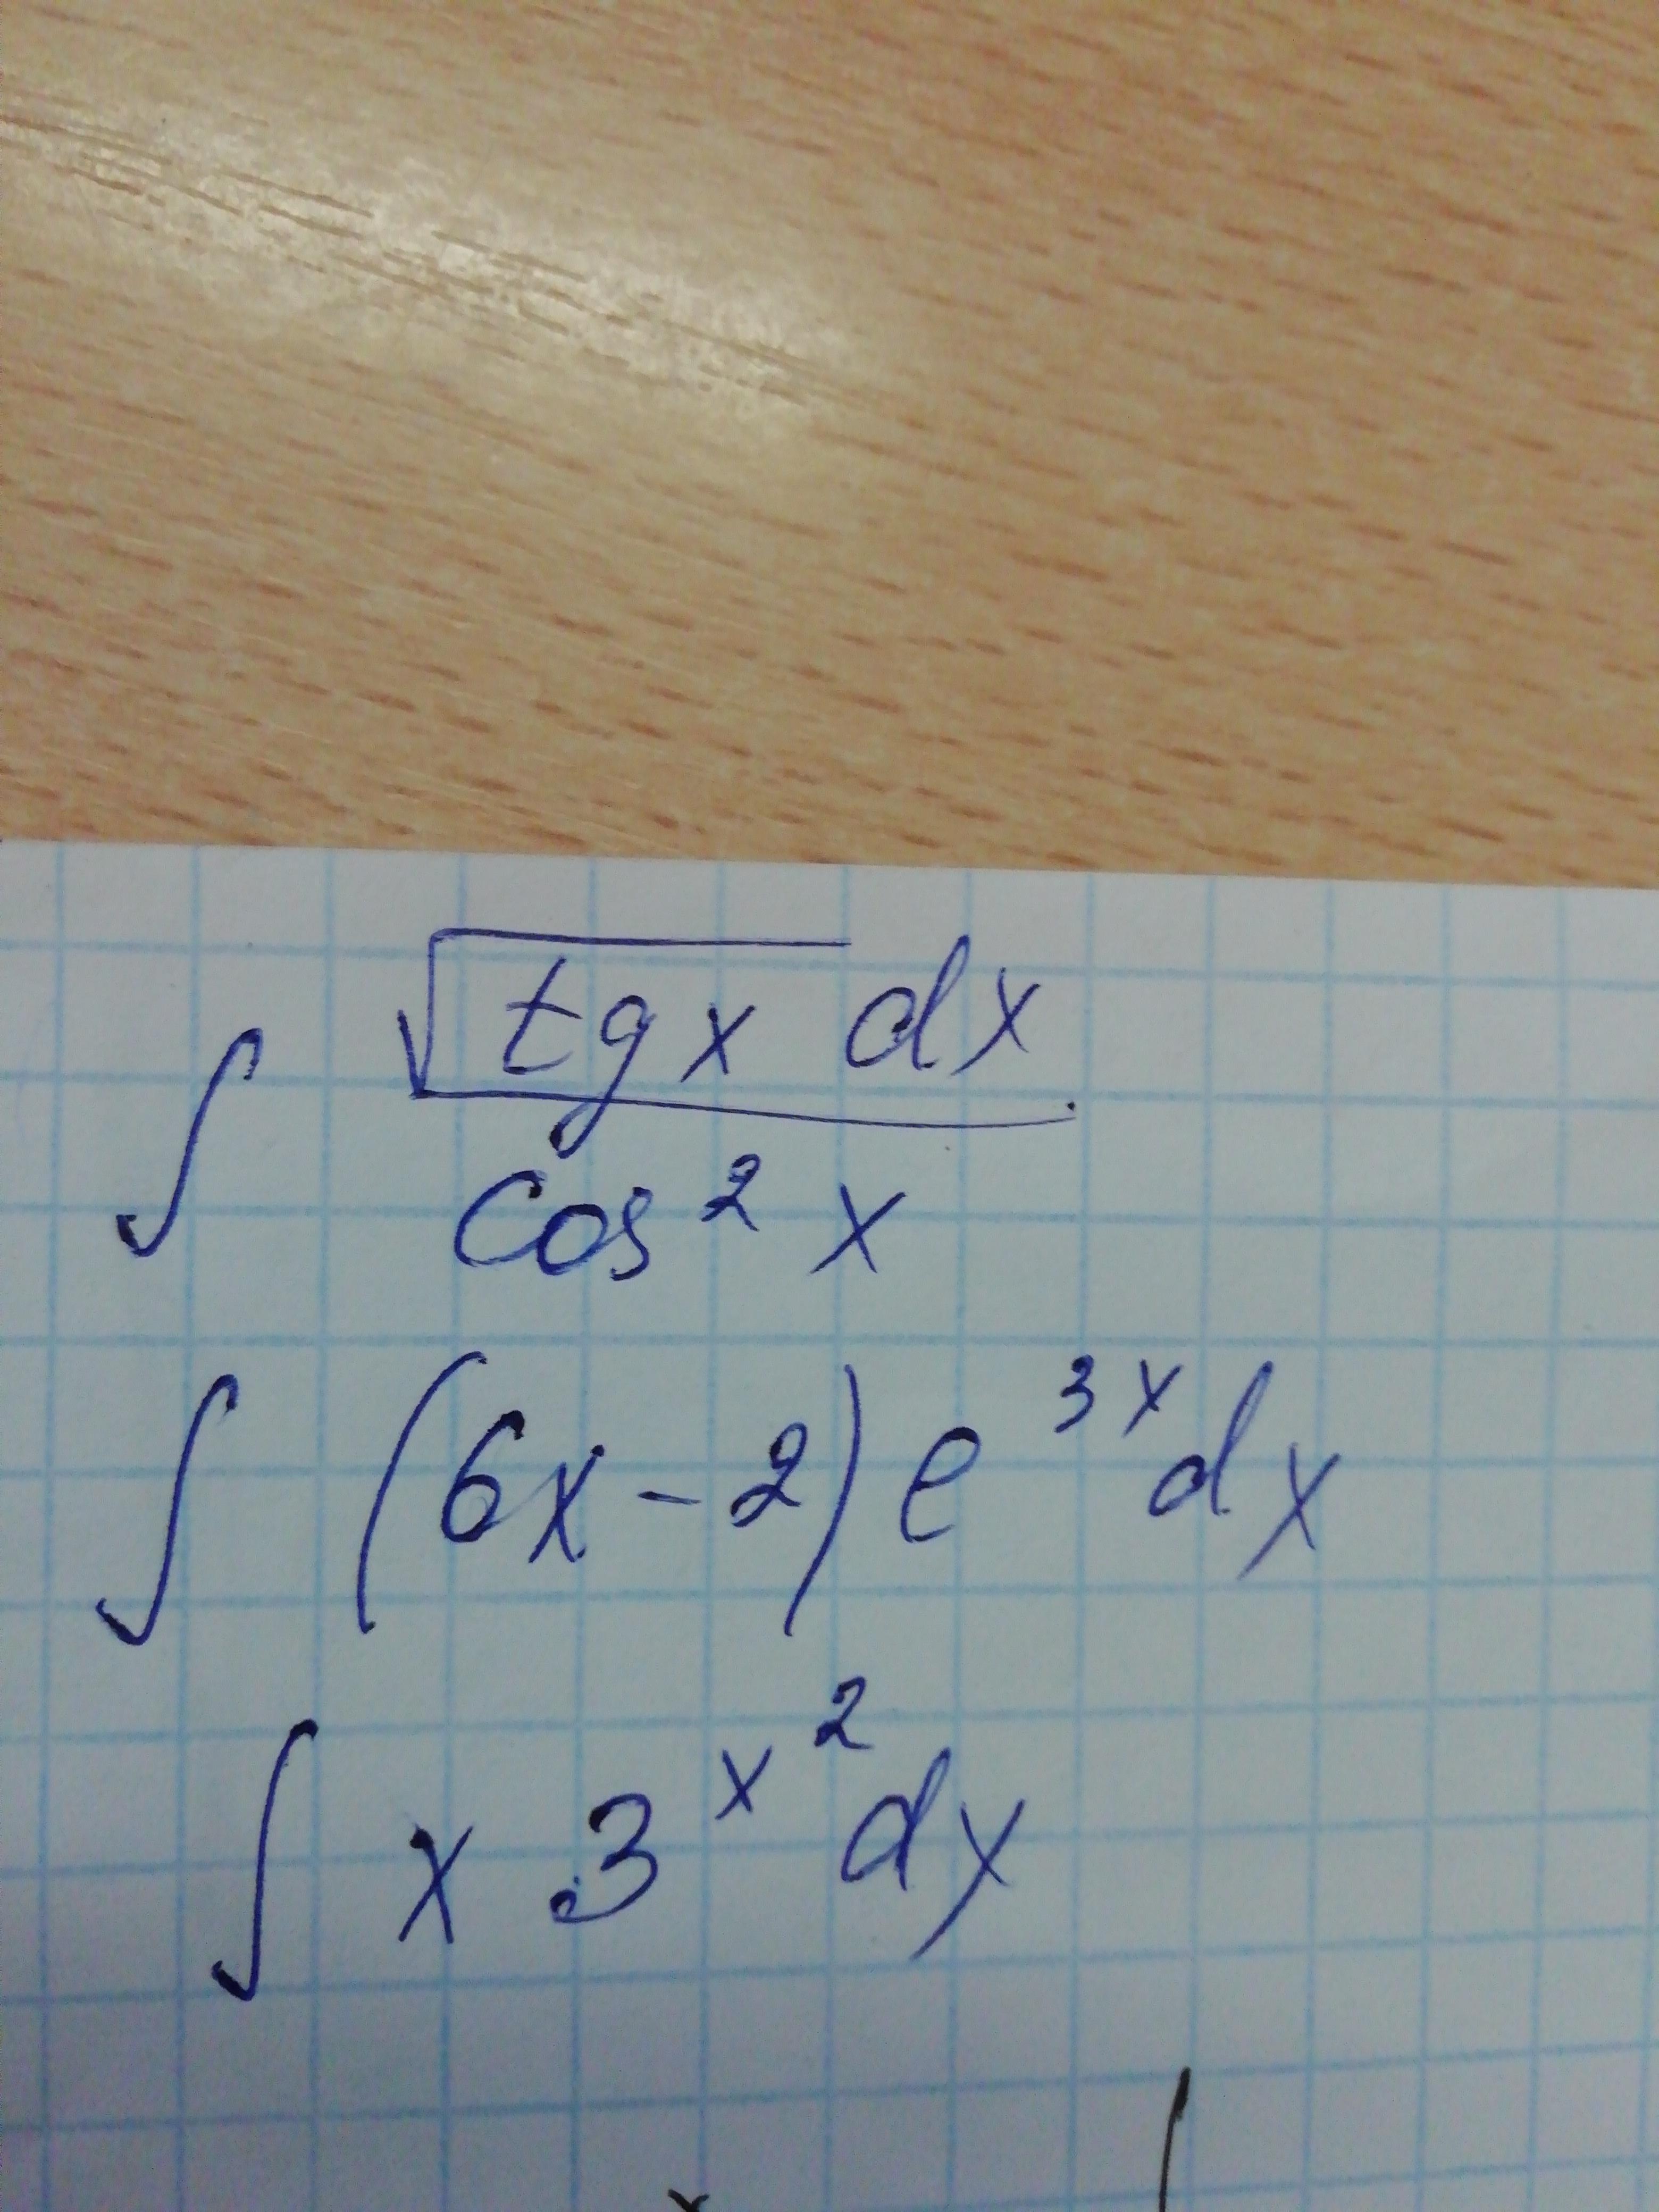 ∫ √(tg x) dx / cos² x
∫ (6x - 2) e^{3x} dx
∫ x 3^{x²} dx